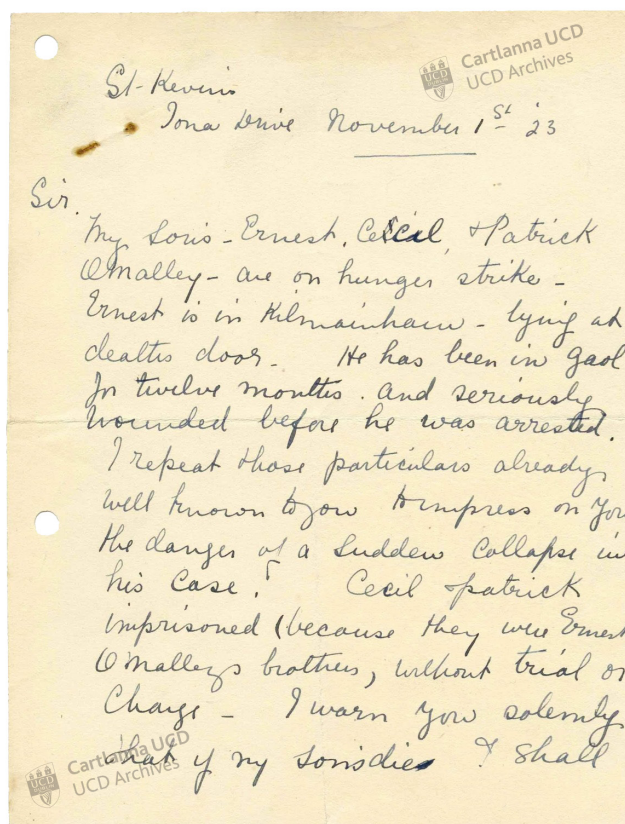 Cartlanna UCD
UCD Archives
St-Kevin's
Iona Drive November 1st '23
Sir.
My Sons - Ernest, Cecil, & Patrick
O'Malley - are on hunger strike -
Ernest is in Kilmainham - lying at
deaths door - He has been in gaol
for twelve months. and seriously
wounded before he was arrested.
I repeat those particulars already
well known to you to impress on you
the danger of a Sudden Collapse in
his Case! Cecil & patrick
imprisoned (because they were Ernest
O'Malleys brothers, without trial or
Charge - I warn you solemnly
that if my sons die I shall
Cartlanna UCD
UCD Archives